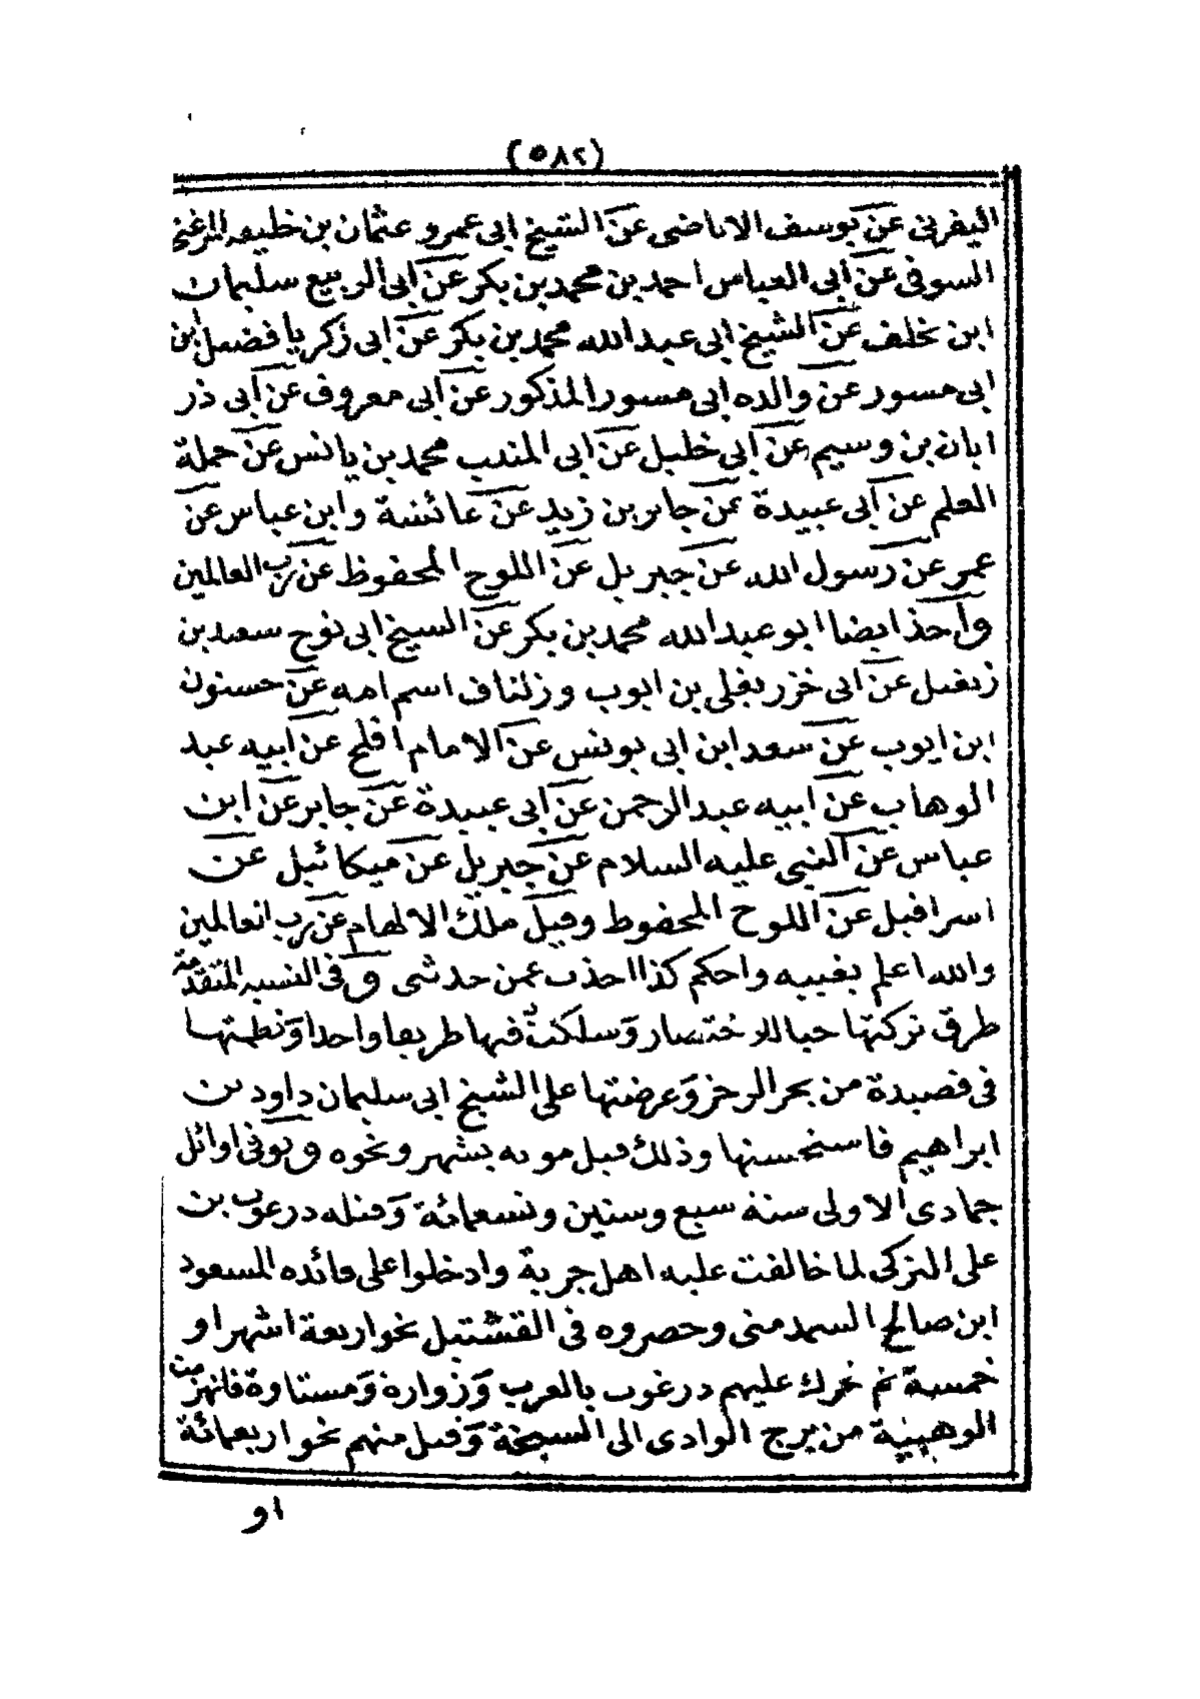 (٥٨٢)
اليفرنى عن يوسف الاباضى عن الشيخ ابى عمرو عثمان بن خليفه المارغنى
السوفى عن ابى العباس احمد بن محمد بن بكر عن ابى الربيع سليمان
ابن خلف عن الشيخ ابى عبد الله محمد بن بكر عن ابى زكريا فضل ابن
ابى مسور عن والده ابى مسور المذكور عن ابى معروف عن ابى ذر
ابان بن وسيم عن ابى خليل عن ابى المنيب محمد بن يانس عن حملة
العلم عن ابى عبيدة عن جابر بن زيد عن عائشة وابن عباس عن
عمر عن رسول الله عن جبريل عن اللوح المحفوظ عن رب العالمين
وأخذ ايضا ابو عبد الله محمد بن بكر عن الشيخ ابى نوح سعيد بن
زنغيل عن ابى خزر يغلى بن ايوب وزلتاف اسم امه عن حسنون
ابن ايوب عن سعد ابن ابى يونس عن الامام افلح عن ابيه عبد
الوهاب عن ابيه عبد الرحمن عن ابى عبيدة عن جابر عن ابن
عباس عن النبى عليه السلام عن جبريل عن ميكائيل عن
اسرافيل عن اللوح المحفوظ وقيل ملك الالهام عن رب العالمين
والله اعلم بغيبه واحكم كذا اخذت عمن حدثنى وفى النسبه المتقدمة
طرق تركتها حبا للاختصار وسلكت فيها طريقا واحدا ونظمتها
فى قصيدة من بحر الرجز وعرضتها على الشيخ ابى سليمان داود بن
ابراهيم فاستحسنها وذلك قبل موته بشهر ونحوه وتوفى اوائل
جمادى الاولى سنة سبع وستين وتسعمائة وقتله درغوب بن
على التركى لما خالفت عليه اهل جربة وادخلوا على قائده المسعود
ابن صالح السمدمنى وحصروه فى القشتيل نحو اربعة اشهر او
خمسة ثم تحرك عليهم درغوب بالعرب وزوارة ومستاوة فانهزمت
الوهبية من برج الوادى الى السبخة وقتل منهم نحو اربعمائة
او